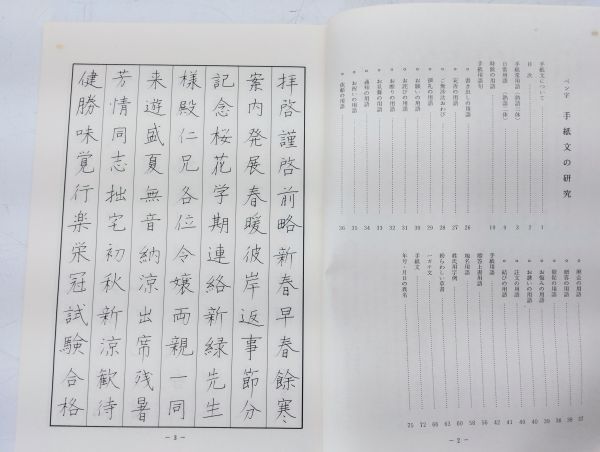 ペン字 手紙文の研究
目次
手紙文について 1
日常用語
時候の用語
手紙用語句
書き出しの用語 26
安否の用語 27
ご無沙汰おわび 28
御礼の用語 29
お願いの用語 30
お詫びの用語 31
お断りの用語 32
お見舞の用語 33
通知の用語 34
お祝いの用語 35
依頼の用語 36
照会の用語 37
催促の用語
お悔みの用語
お誘いの用語
注文の用語
結びの用語
手紙用語
贈答上書用語
地名用語
姓氏用字例
紛らわしい草書
手紙文 72
年号・月日の異名 75
— 2 —
拝啓謹啓前略新春早春餘寒
案内発展春暖彼岸返事節分
記念桜花学期連絡新緑先生
様殿仁兄各位令嬢両親一同
来遊盛夏無音納涼出席残暑
芳情同志拙宅初秋新涼歓待
健勝味覚行楽栄冠試験合格
— 3 —